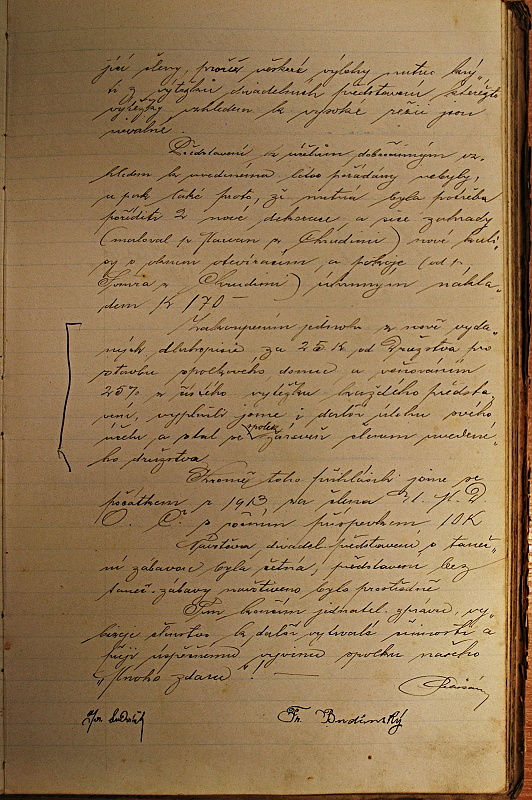 jící slevy, pročež veškeré výlohy nutno krý„
ti z výtěžku divadelních představení kterážto
výtěžky vzhledem k vysoké režii jsou
nevalné.
Představení k účelům dobročinným vz„
hledem k uvedenému letos pořádány nebyly,
a pak také proto, že nutná byla potřeba
poříditi 2 nové dekorace a sice zahrady
(maloval p. z Chrudimi) nové kuli„
sy s oknem otvíracím, a pokoje (od p.
z Chrudimi) úhrnným nákla„
dem K 170 —
Zakoupením jednoho z nově vyda„
ných dluhopisů za 25 K od Družstva pro
stavbu spolkového domu a věnováním
25% z čistého výtěžku každého předsta„
vení, vyplnili jsme i další úlohu svého
účelu a stal se spolek zároveň členem uvedené„
ho družstva.
Kromě toho přihlásili jsme se
počátkem r. 1913 za člena Ú. M. D.
O. Č. s ročním příspěvkem 10 K
Návštěva divadel. představení s taneč„
ní zábavou byla četná, představení bez
taneč. zábavy navštíveno bylo prostředně
Tím končím jednatel. zprávu, vy„
bízeje členstvo k další vytrvalé činnosti a
přeji úspěšnému vývinu spolku našeho
„Mnoho zdaru“! —
Fr. Budínský